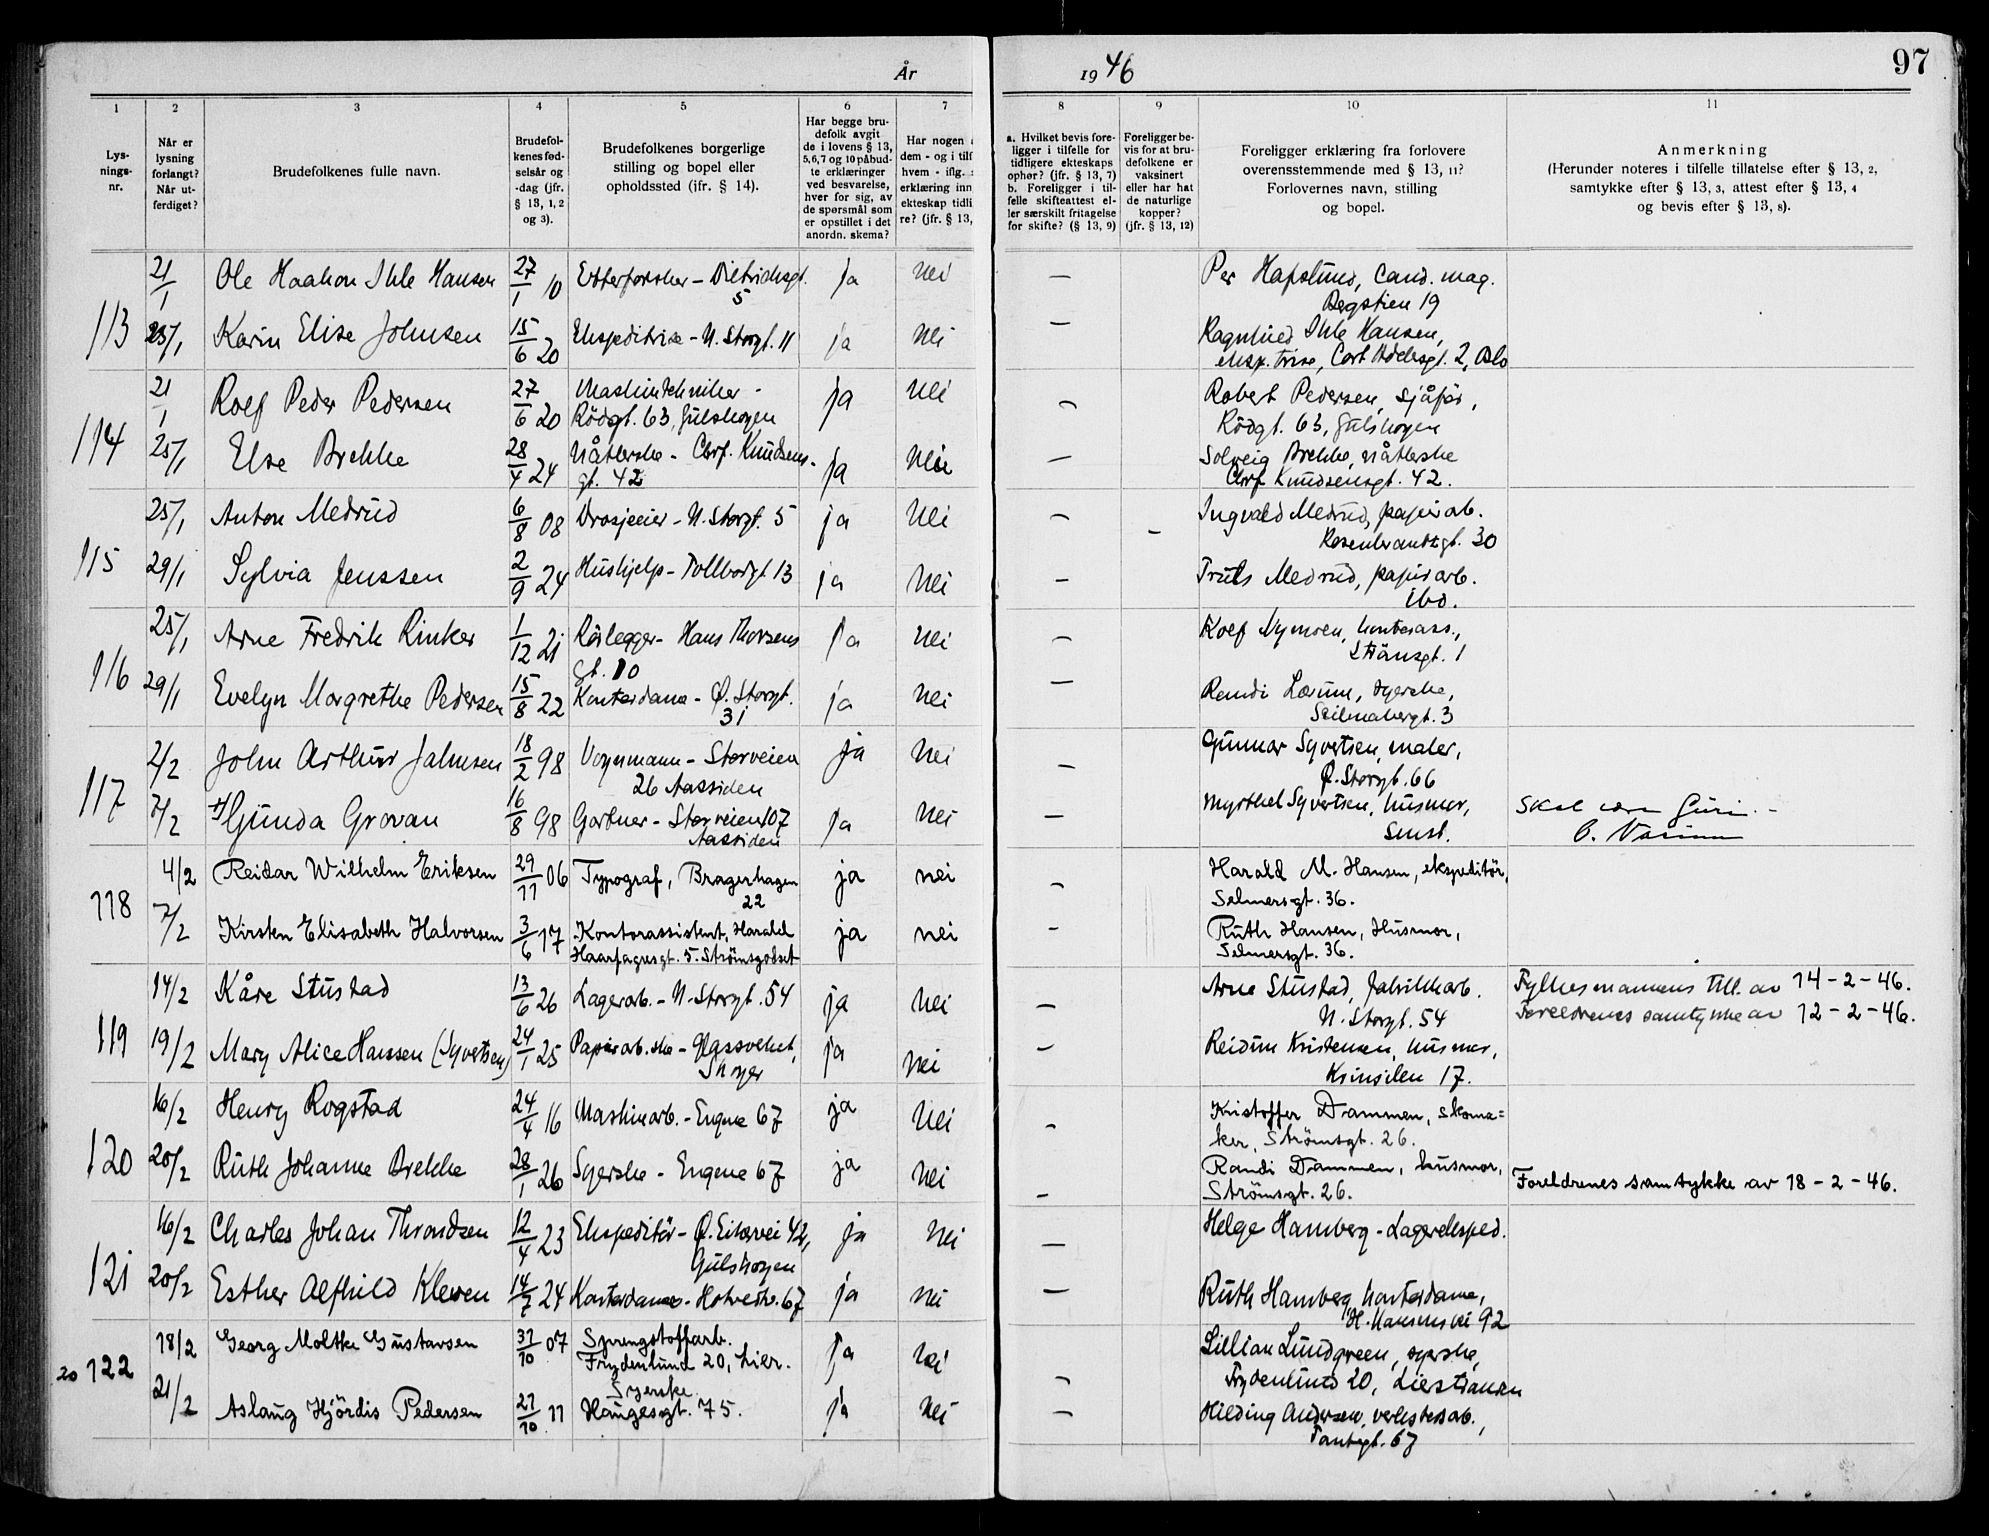 År
1946
97
1 2 3 4 5 6 7 8 9 10 11
Lys-
nings-
nr.
Når er
lysning
forlangt?
Når ut-
ferdiget?
Brudefolkenes fulle navn.
Brudefol-
kenes fød-
selsår og
-dag (jfr.
§ 13, 1, 2
og 3).
Brudefolkenes borgerlige
stilling og bopel eller
opholdssted (jfr. § 14).
Har begge bru-
defolk avgit
de i lovens § 13,
5,6,7 og 10 påbud-
te erklæringer
ved besvarelse,
hver for sig, av
de spørsmål som
er opstillet i det
anordn. skema?
Har nogen
dem - og i tilf
hvem - iflg.
erklæring inn
ekteskap tidli
re? (jfr. § 13,
a. Hvilket bevis fore-
ligger i tilfelle for
tidligere ekteskaps
ophør? (jfr. § 13, 7)
b. Foreligger i til-
felle skifteattest el-
ler særskilt fritagelse
for skifte? (§ 13, 9)
Foreligger be-
vis for at bru-
defolkene er
vaksinert
eller har hat
de naturlige
kopper?
(jfr. § 13, 12)
Foreligger erklæring fra forlovere
overensstemmende med § 13, 11?
Forlovernes navn, stilling
og bopel.
Anmerkning
(Herunder noteres i tilfelle tillatelse efter § 13, 2,
samtykke efter § 13, 3, attest efter § 13, 4
og bevis efter § 13, 8).
21/1 Ole Haakon Ihle Hansen 27/1 10 Etterforsker - Dietrichsgt. ja nei — Per Hafslund, Cand. mag.
5 Bergstien 19
113 25/1 Karin Elise Johnsen 15/6 20 Ekspeditrise - N. Storgt. 11 ja nei — Ragnhild Ihle Hansen,
eksp.trise, Cort Adelersgt. 2, Oslo
21/1 Rolf Peder Pedersen 27/6 20 Maskintekniker - ja nei — Robert Pedersen, sjåfør,
Rödgt. 63, Gulskogen Rödgt. 63, Gulskogen
114 25/1 Else Brekke 28/4 24 Nåtlerske - Chrf. Knudsens- ja nei — Solveig Brekke, nåtlerske
gt. 42 Chrf Knudsensgt. 42.
25/1 Anton Medrud 6/8 08 Drosjeeier - N. Storgt. 5 ja nei — - Ingvald Medrud, papirarb.
Rosenkrantzgt. 30
115 29/1 Sylvia Jenssen 2/9 24 Hushjelp - Tollbodgt. 13 ja nei — Truls Medrud, papirarb.
ibd.
25/1 Arne Fredrik Rinker 1/12 21 Rörlegger - Hans Thorsens ja nei — Rolf Nymoen, kontorass.,
gt. 10 Strömsgt. 1
116 29/1 Evelyn Margrethe Pedersen 15/8 22 Kontordame - Ø. Storgt. ja nei — Randi Lærum, syerske,
31
2/2 John Arthur Jahnsen 18/2 98 Vognmann - Storveien ja nei — Gunnar Syvertsen, maler,
26 Aassiden Ø. Storgt. 66
117 7/2 Gunda Grovan 16/8 98 Gartner - Storveien 107 ja nei — Myrthel Syvertsen, husmor,
Aassiden Smst.
Skal være Guri. -
4/2 Reidar Wilhelm Eriksen 29/11 06 Typograf, Bragerhagen ja nei — Harald M. Hansen, ekspeditör,
22 Selmersgt. 36.
118 7/2 Kirsten Elisabeth Halvorsen 3/6 17 Kontorassistent, Harald ja nei - Ruth Hansen, Husmor,
Haarfagresgt. 5. Strömsgodset Selmersgt. 36.
14/2 Kåre Stustad 13/6 26 Lagerarb. - N. Storgt. 54 ja nei — Arne Stustad, fabrikkarb. Fylkesmannens till. av 14-2-46.
N. Storgt. 54 Foreldrenes samtykke av 12-2-46.
119 19/2 Mary Alice Hansen (Syvertsen) 24/1 25 Papirarb.ske - Glassverket, ja nei — Reidun Kristensen, husmor,
Skoger 17.
16/2 Henry Rogstad 24/4 16 Maskinarb. - Engene 67 ja nei — Kristoffer Dammen, skoma=
ker, Strömsgt. 26.
120 20/2 Ruth Johanne Brekke 28/1 26 Syerske - Engene 67 ja nei — Randi Dammen, husmor,
Strömsgt. 26. Foreldrenes samtykke av 18-2-46.
16/2 Charles Johan Throndsen 12/4 23 Ekspeditör - Ø. Eikervei 42, ja nei — Helge Hamberg - Lagereksped.
Gulskogen
121 20/2 Esther Alfhild Kleven 14/7 24 Kontordame - Hotvedtv. 67 ja nei — Ruth Hamberg, kontordame,
H. Hansensvei 92
18/2 Georg Moltke Gustavsen 31/10 07 Sprengstoffarb. ja nei — Lillian Lundgreen, syerske,
Frydenlund 20, Lier. Frydenlund 20, Lierstranda
20 122 21/2 Aslaug Hjördis Pedersen 27/10 11 Syerske ja nei — Hilding Andersen, verkstedarb.,
Haugesgt. 75. Tomtegt. 67